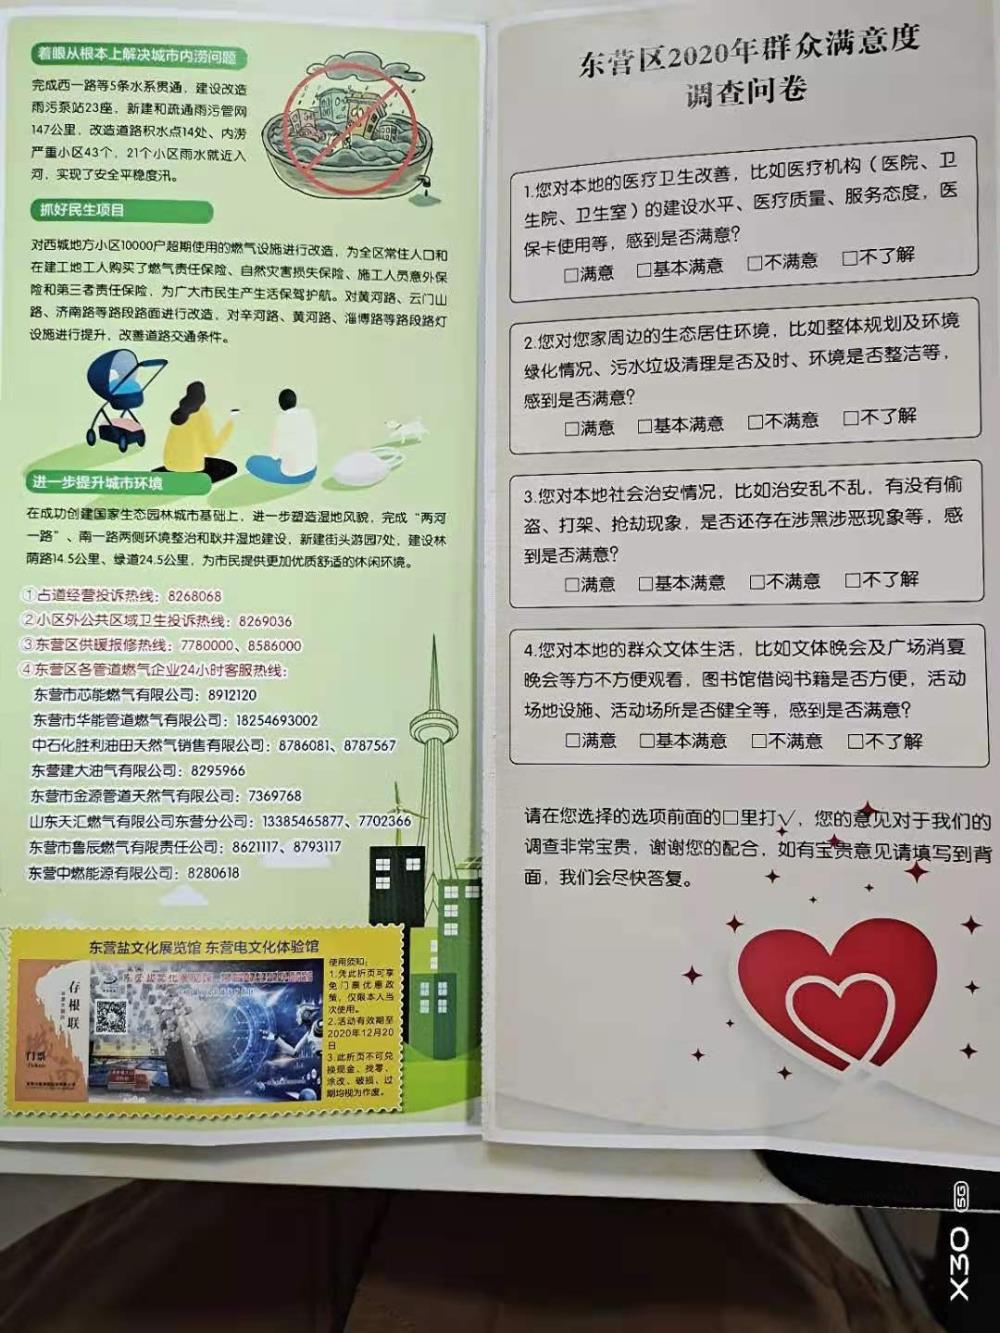 着眼从根本上解决城市内涝问题
完成西一路等5条水系贯通，建设改造
雨污泵站23座，新建和疏通雨污管网
147公里，改造道路积水点14处、内涝
严重小区43个，21个小区雨水就近入
河，实现了安全平稳度汛。
抓好民生项目
对西城地方小区10000户超期使用的燃气设施进行改造，为全区常住人口和
在建工地工人购买了燃气责任保险、自然灾害损失保险、施工人员意外保
险和第三者责任保险，为广大市民生产生活保驾护航。对黄河路、云门山
路、济南路等路段路面进行改造，对辛河路、黄河路、淄博路等路段路灯
设施进行提升，改善道路交通条件。
进一步提升城市环境
在成功创建国家生态园林城市基础上，进一步塑造湿地风貌，完成“两河
一路”、南一路两侧环境整治和耿井湿地建设，新建街头游园7处，建设林
荫路14.5公里、绿道24.5公里，为市民提供更加优质舒适的休闲环境。
①占道经营投诉热线：8268068
②小区外公共区域卫生投诉热线：8269036
③东营区供暖报修热线：7780000、8586000
④东营区各管道燃气企业24小时客服热线：
东营市芯能燃气有限公司：8912120
东营市华能管道燃气有限公司：18254693002
中石化胜利油田天然气销售有限公司：8786081、8787567
东营建大油气有限公司：8295966
东营市金源管道天然气有限公司：7369768
山东天汇燃气有限公司东营分公司：13385465877、7702366
东营市鲁辰燃气有限责任公司：8621117、8793117
东营中燃能源有限公司：8280618
东营盐文化展览馆 东营电文化体验馆
存根联
门票
使用须知：
1.凭此折页可享
免门票优惠政
策，仅限本人当
次使用。
2.活动有效期至
2020年12月20
日
3.此折页不可兑
换现金、找零，
涂改、破损、过
期均视为作废。
东营区2020年群众满意度
调查问卷
1.您对本地的医疗卫生改善，比如医疗机构（医院、卫
生院、卫生室）的建设水平、医疗质量、服务态度，医
保卡使用等，感到是否满意？
□满意 □基本满意 □不满意 □不了解
2.您对您家周边的生态居住环境，比如整体规划及环境
绿化情况、污水垃圾清理是否及时、环境是否整洁等，
感到是否满意？
□满意 □基本满意 □不满意 □不了解
3.您对本地社会治安情况，比如治安乱不乱，有没有偷
盗、打架、抢劫现象，是否还存在涉黑涉恶现象等，感
到是否满意？
□满意 □基本满意 □不满意 □不了解
4.您对本地的群众文体生活，比如文体晚会及广场消夏
晚会等方不方便观看，图书馆借阅书籍是否方便，活动
场地设施、活动场所是否健全等，感到是否满意？
□满意 □基本满意 □不满意 □不了解
请在您选择的选项前面的□里打√，您的意见对于我们的
调查非常宝贵，谢谢您的配合，如有宝贵意见请填写到背
面，我们会尽快答复。
X30 5G